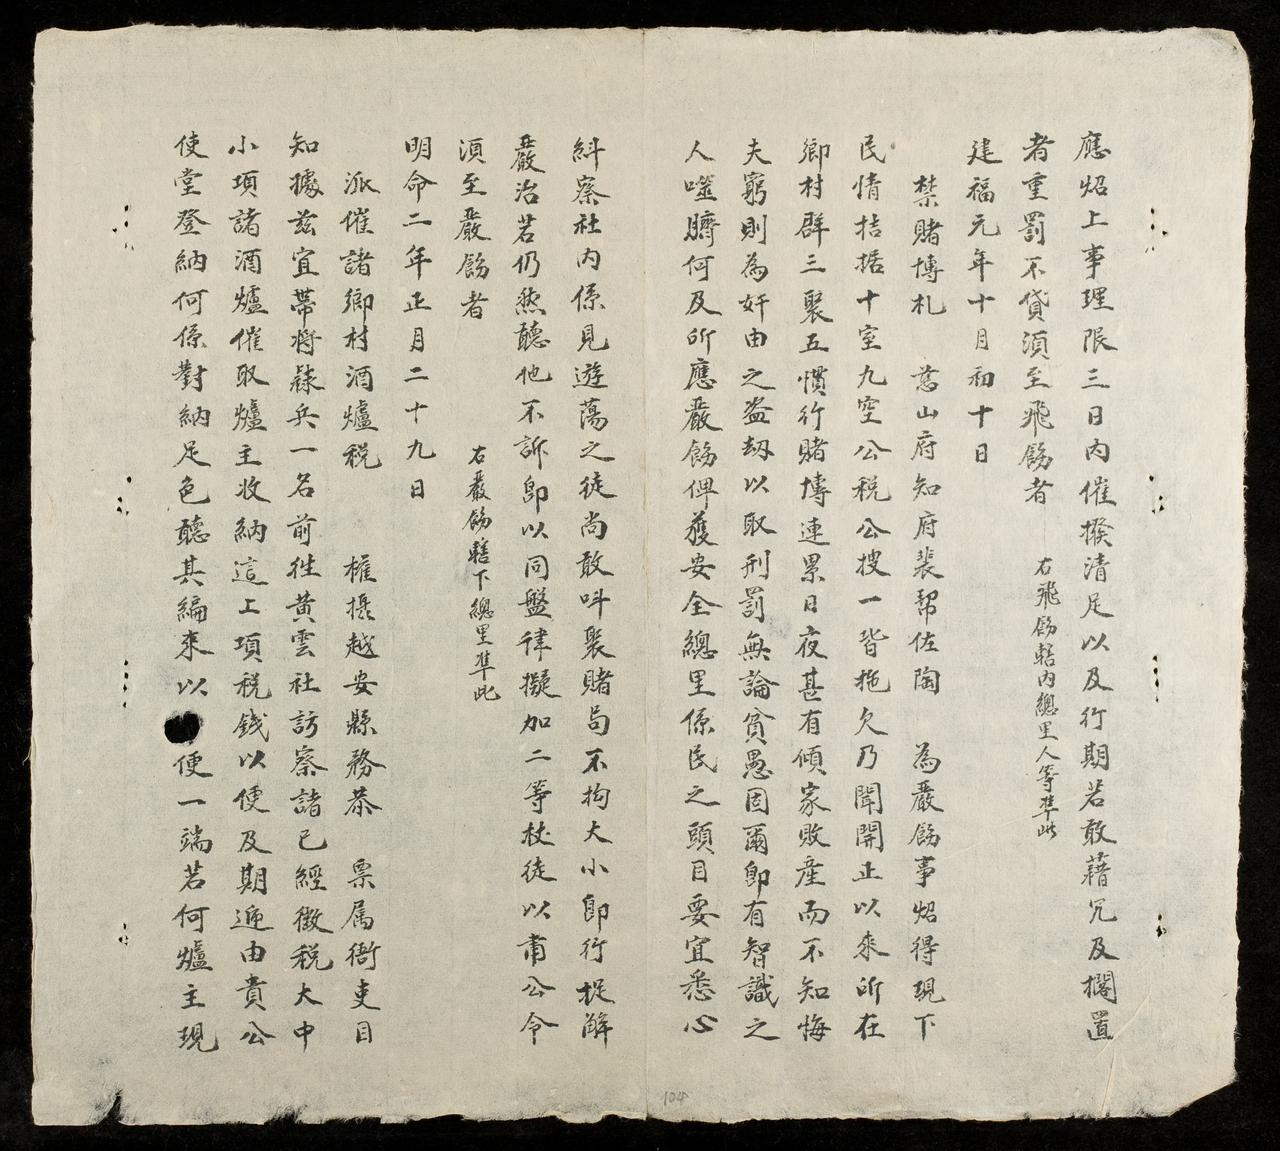 應炤上事理限三日內催撥清足以及行期若敢藉冗及擱置
者重罰不貸須至飛飭者　右飛飭轄內總里人等準此
建福元年十月初十日
禁賭博札　慈山府知府裴幇佐陶　為嚴飭事炤得現下
民情拮据十室九空公稅公搜一皆拖欠乃聞開正以來所在
鄉村群三聚五慣行賭博連累日夜甚有傾家敗產而不知悔
夫窮則為奸由之盜劫以取刑罰無論貧愚固爾即有智識之
人噬臍何及所應嚴飭俾獲安全總里係民之頭目要宜悉心
糾察社內係見遊蕩之徒尚敢呌聚賭局不拘大小即行捉解
嚴治若仍烝聽他不訴即以同盤律擬加二等杖徒以肅公令
須至嚴飭者　右嚴飭轄下總里準此
明命二年正月二十九日
派催諸鄉村酒爐稅　權攝越安縣務恭　票属衙吏目
知據茲宜帶將隸兵一名前徃黄雲社訪察諸已經徵稅大中
小項諸酒爐催取爐主收納這工項稅錢以便及期遞由貴公
使堂登納何係對納足色聽其編來以便一端若何爐主現
104